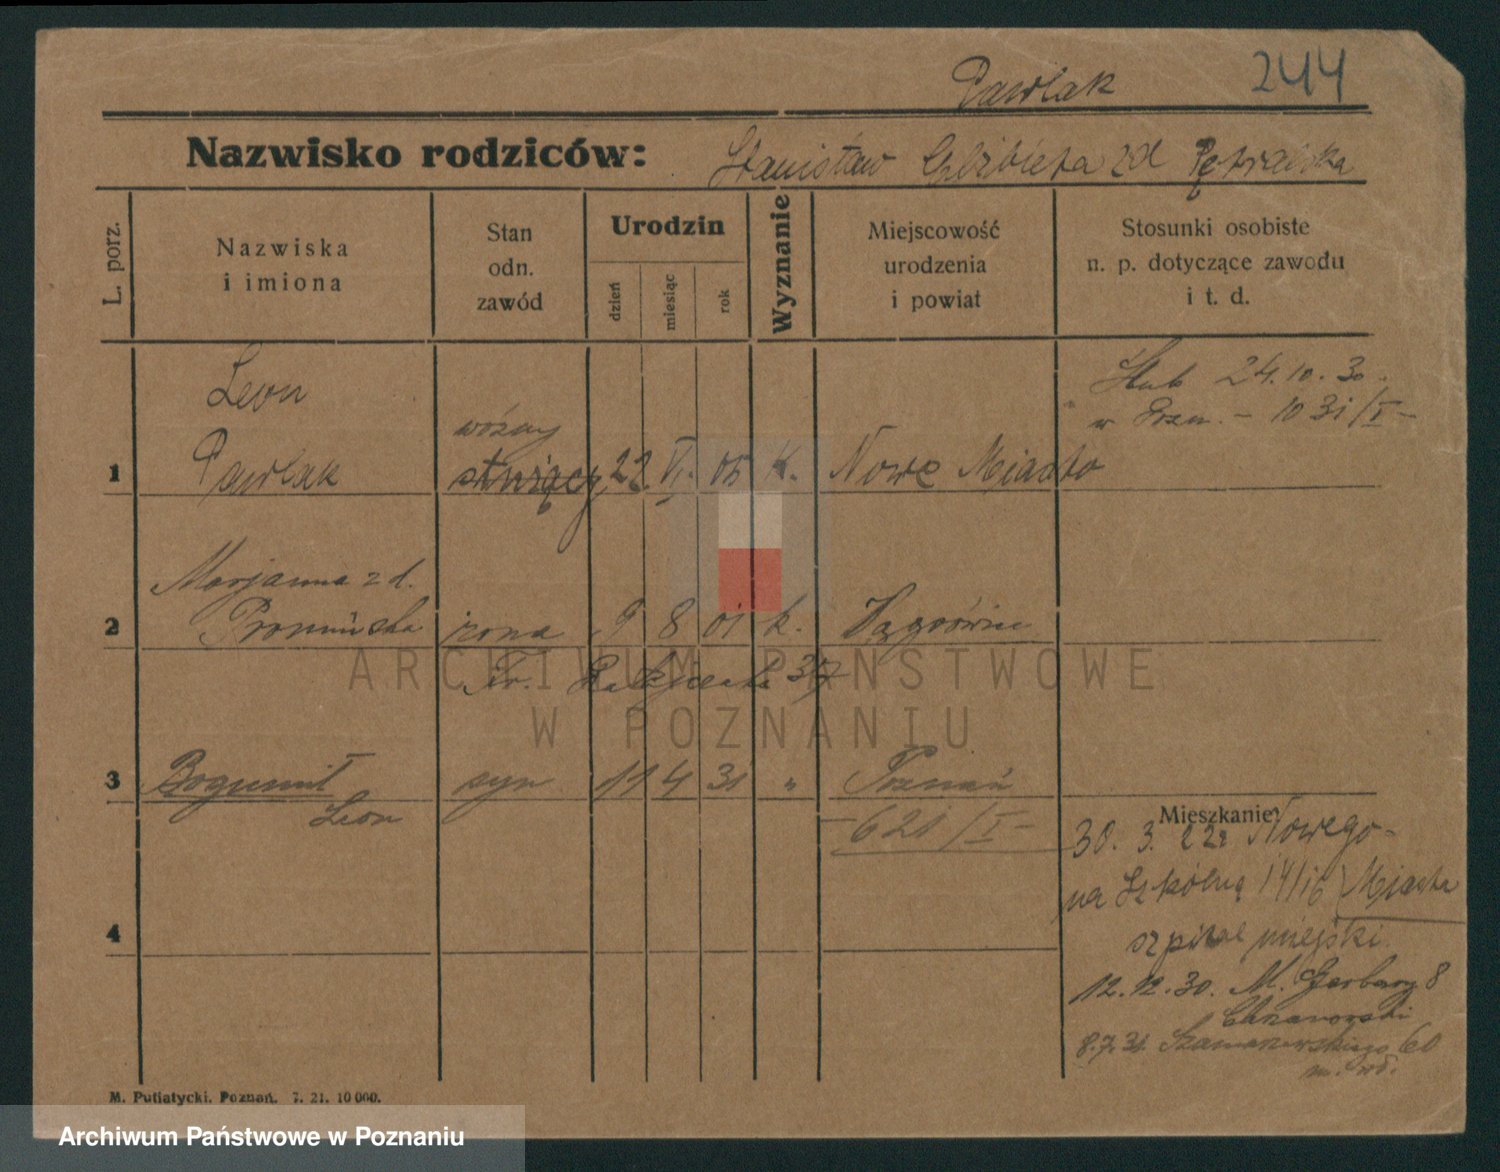 Pawlak 244
Nazwisko rodziców: Stanisław Elżbieta zd
L. porz.
Nazwiska
i imiona
Stan
odn.
zawód
Urodzin
dzień
miesiąc
rok
Wyznanie
Miejscowość
urodzenia
i powiat
Stosunki osobiste
n. p. dotyczące zawodu
i t. d.
Leon
Ślub 24.10.30.
woźny
w Pozn. – 1031/I –
1 Pawlak służący 22 VI. 05 K. Nowe Miasto
Marjanna zd.
2 żona 9 8 01 k.
ARCHIWUM PAŃSTWOWE
W POZNANIU
3 Bogumił syn 11 4 31 " Poznań
Leon
– 621/I –
Mieszkanie
30. 3. 22 Nowego-
na Szkólną 14/16 Miasta
4
szpital miejski
12.12.30. M. Garbary 8
Chrzanowski
8.7.31. Szamarzewskiego 60
M. Putiatycki. Poznań. 7. 21. 10 000.
Archiwum Państwowe w Poznaniu